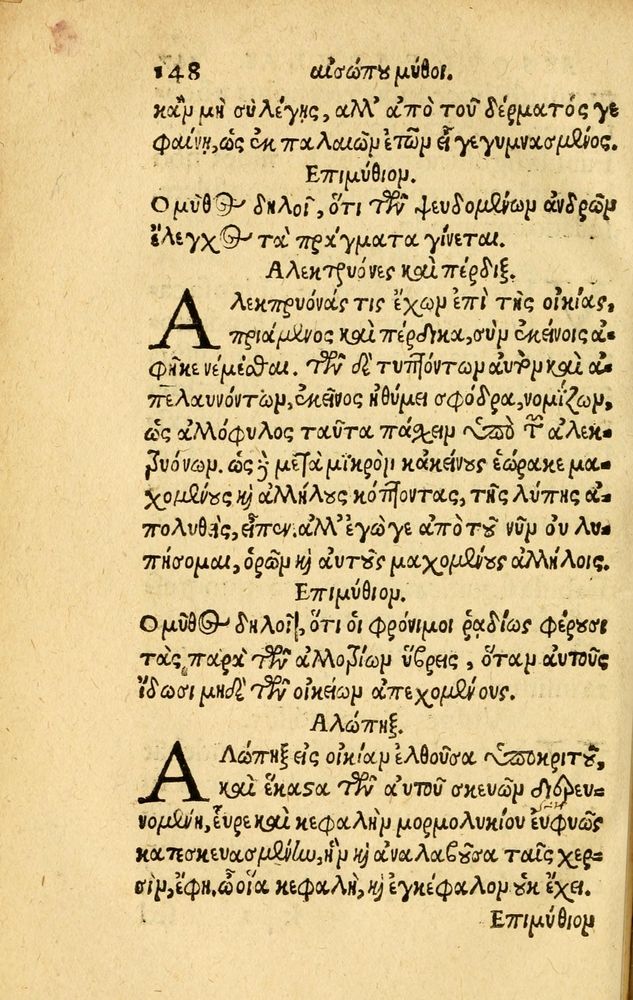 148 αἰσώπου μύθοι.
κἂν μὴ σὺ λέγῃς, ἀλλ' ἀπὸ τοῦ δέρματός γε
φαίνῃ, ὡς ἐκ παλαιῶν ἐτῶν εἶ γεγυμνασμένος.
Ἐπιμύθιον.
Ὁ μῦθος δηλοῖ, ὅτι τῶν ψευδομένων ἀνδρῶν
ἔλεγχος τὰ πράγματα γίνεται.
Ἀλεκτρυόνες καὶ πέρδιξ.
Ἀλεκτρυόνάς τις ἔχων ἐπὶ τῆς οἰκίας,
πριάμενος καὶ πέρδικα, σὺν ἐκείνοις ἀ-
φῆκε νέμεσθαι. τῶν δὲ τυπτόντων αὐτὸν καὶ ἀ-
πελαυνόντων, ἐκεῖνος ἠθύμει σφόδρα, νομίζων,
ὡς ἀλλόφυλος ταῦτα πάσχειν ὑπὸ τῶν ἀλεκ-
τρυόνων. ὡς δὲ μετὰ μικρὸν κἀκείνους ἑώρακε μα-
χομένους καὶ ἀλλήλους κόπτοντας, τῆς λύπης ἀ-
πολυθεὶς, εἶπεν. ἀλλ' ἔγωγε ἀπὸ τοῦ νῦν οὐ λυ-
πήσομαι, ὁρῶν καὶ αὐτοὺς μαχομένους ἀλλήλοις.
Ἐπιμύθιον.
Ὁ μῦθος δηλοῖ, ὅτι οἱ φρόνιμοι ῥαδίως φέρουσι
τὰς παρὰ τῶν ἀλλοτρίων ὕβρεις, ὅταν αὐτοὺς
ἴδωσι μηδὲ τῶν οἰκείων ἀπεχομένους.
Ἀλώπηξ.
Ἀλώπηξ εἰς οἰκίαν ἐλθοῦσα ὑποκριτοῦ,
καὶ ἕκαστα τῶν αὐτοῦ σκευῶν διερευ-
νομένη, εὗρε καὶ κεφαλὴν μορμολυκίου εὐφυῶς
κατεσκευασμένην, ἣν καὶ ἀναλαβοῦσα ταῖς χερ-
σὶν, ἔφη, ὦ οἵα κεφαλὴ, καὶ ἐγκέφαλον οὐκ ἔχει.
Ἐπιμύθιον